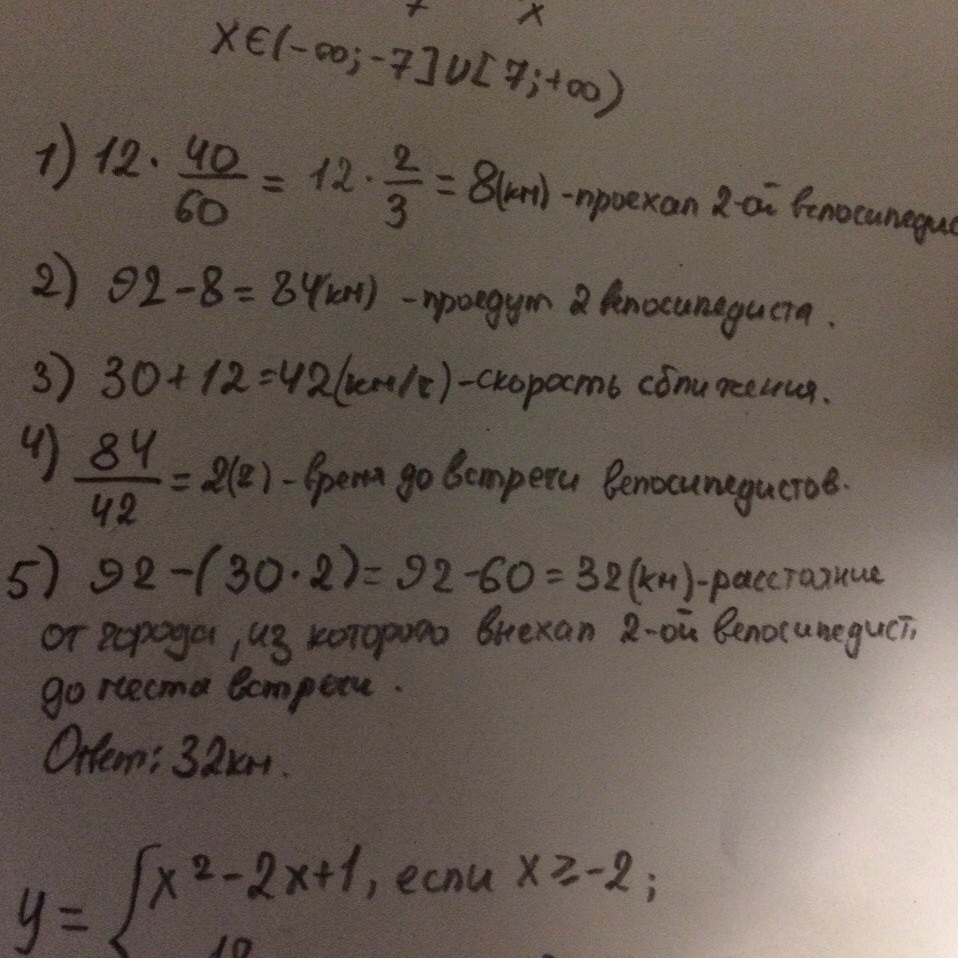 x
X∈(-∞;-7]∪[7;+∞)
1) 12·40/60 = 12·2/3 = 8(км) - проехал 2-ой
2) 92-8=84(км) - проедут 2 велосипедиста.
3) 30+12=42(км/ч)-скорость сближения.
4) 84/42 = 2(ч) - время до встречи велосипедистов.
5) 92-(30·2)=92-60=32(км)-расстояние
от города, из которого выехал 2-ой велосипедист,
до места встречи.
Ответ: 32км.
y={x²-2x+1, если x≥-2;